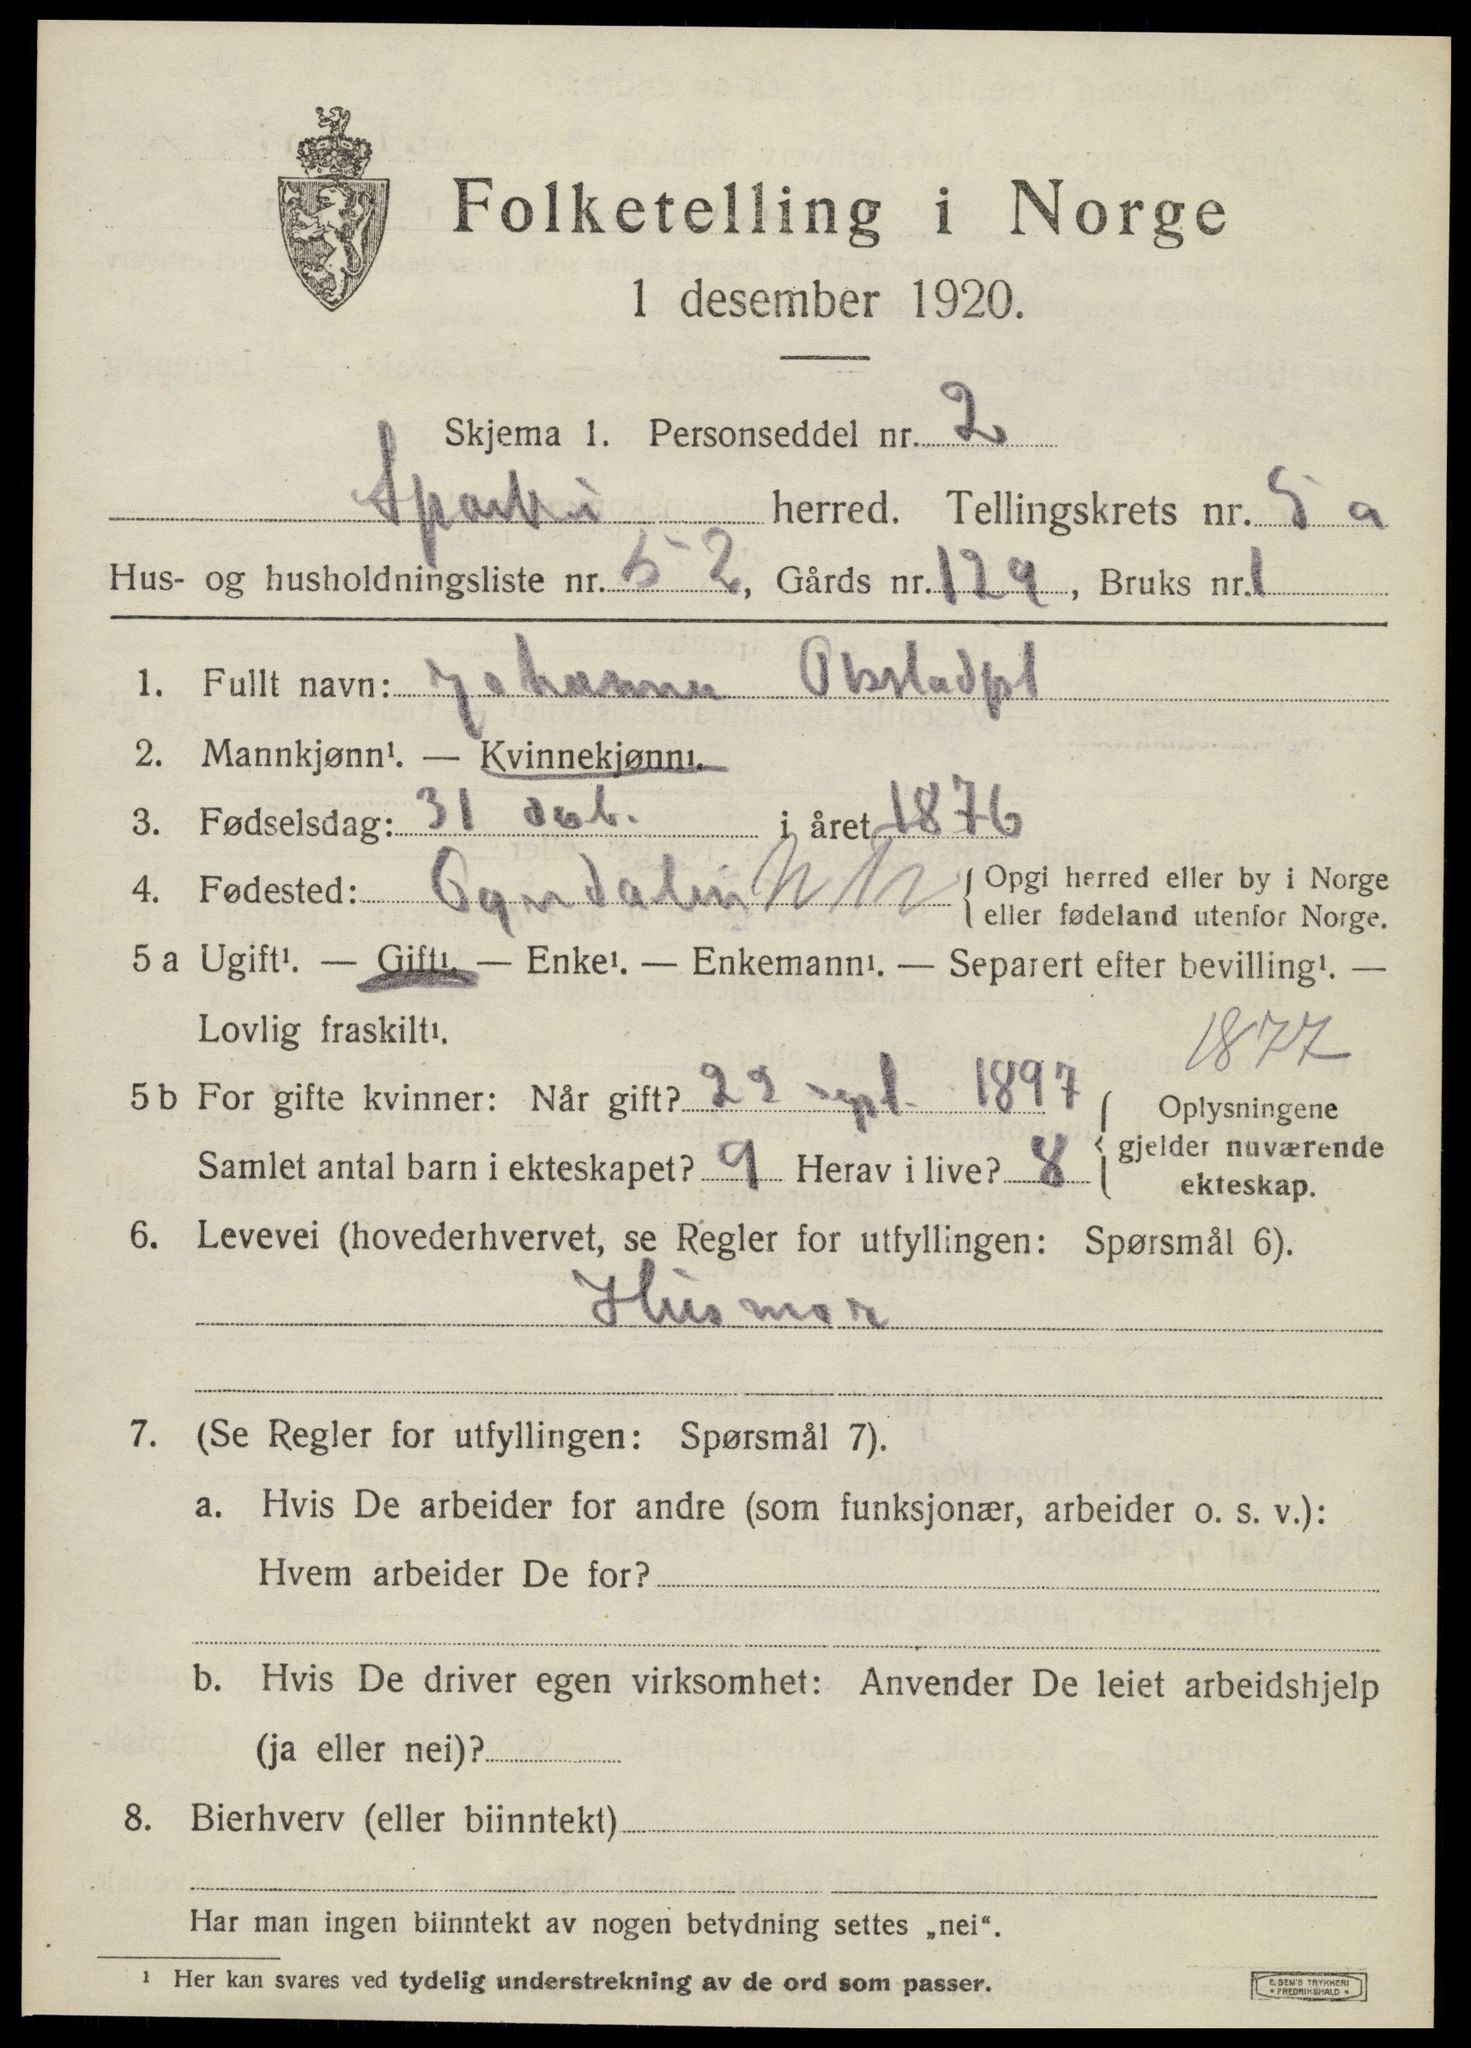 Folketelling i Norge
1 desember 1920.
Skjema 1. Personseddel nr. 2
Sparbu herred. Tellingskrets nr. 5 a
Hus- og husholdningsliste nr. 52, Gårds nr. 129, Bruks nr. 1
1. Fullt navn: Johanna
2. Mannkjønn¹. — Kvinnekjønn¹.
3. Fødselsdag: 31 i året 1876
4. Fødested: Ogndalen {Opgi herred eller by i Norge
eller fødeland utenfor Norge.
5 a Ugift¹. — Gift¹. — Enke¹. — Enkemann¹. — Separert efter bevilling¹. —
Lovlig fraskilt¹.
1877
5 b For gifte kvinner: Når gift? 22 sept. 1897 { Oplysningene
Samlet antal barn i ekteskapet? 9 Herav i live? 8 gjelder nuværende
ekteskap.
6. Levevei (hovederhvervet, se Regler for utfyllingen: Spørsmål 6).
Husmor
7. (Se Regler for utfyllingen: Spørsmål 7).
a. Hvis De arbeider for andre (som funksjonær, arbeider o. s. v.):
Hvem arbeider De for?
b. Hvis De driver egen virksomhet: Anvender De leiet arbeidshjelp
(ja eller nei)?
8. Bierhverv (eller biinntekt)
Har man ingen biinntekt av nogen betydning settes „nei“.
¹ Her kan svares ved tydelig understrekning av de ord som passer.
E. SEM'S TRYKKERI
FREDRIKSHALD